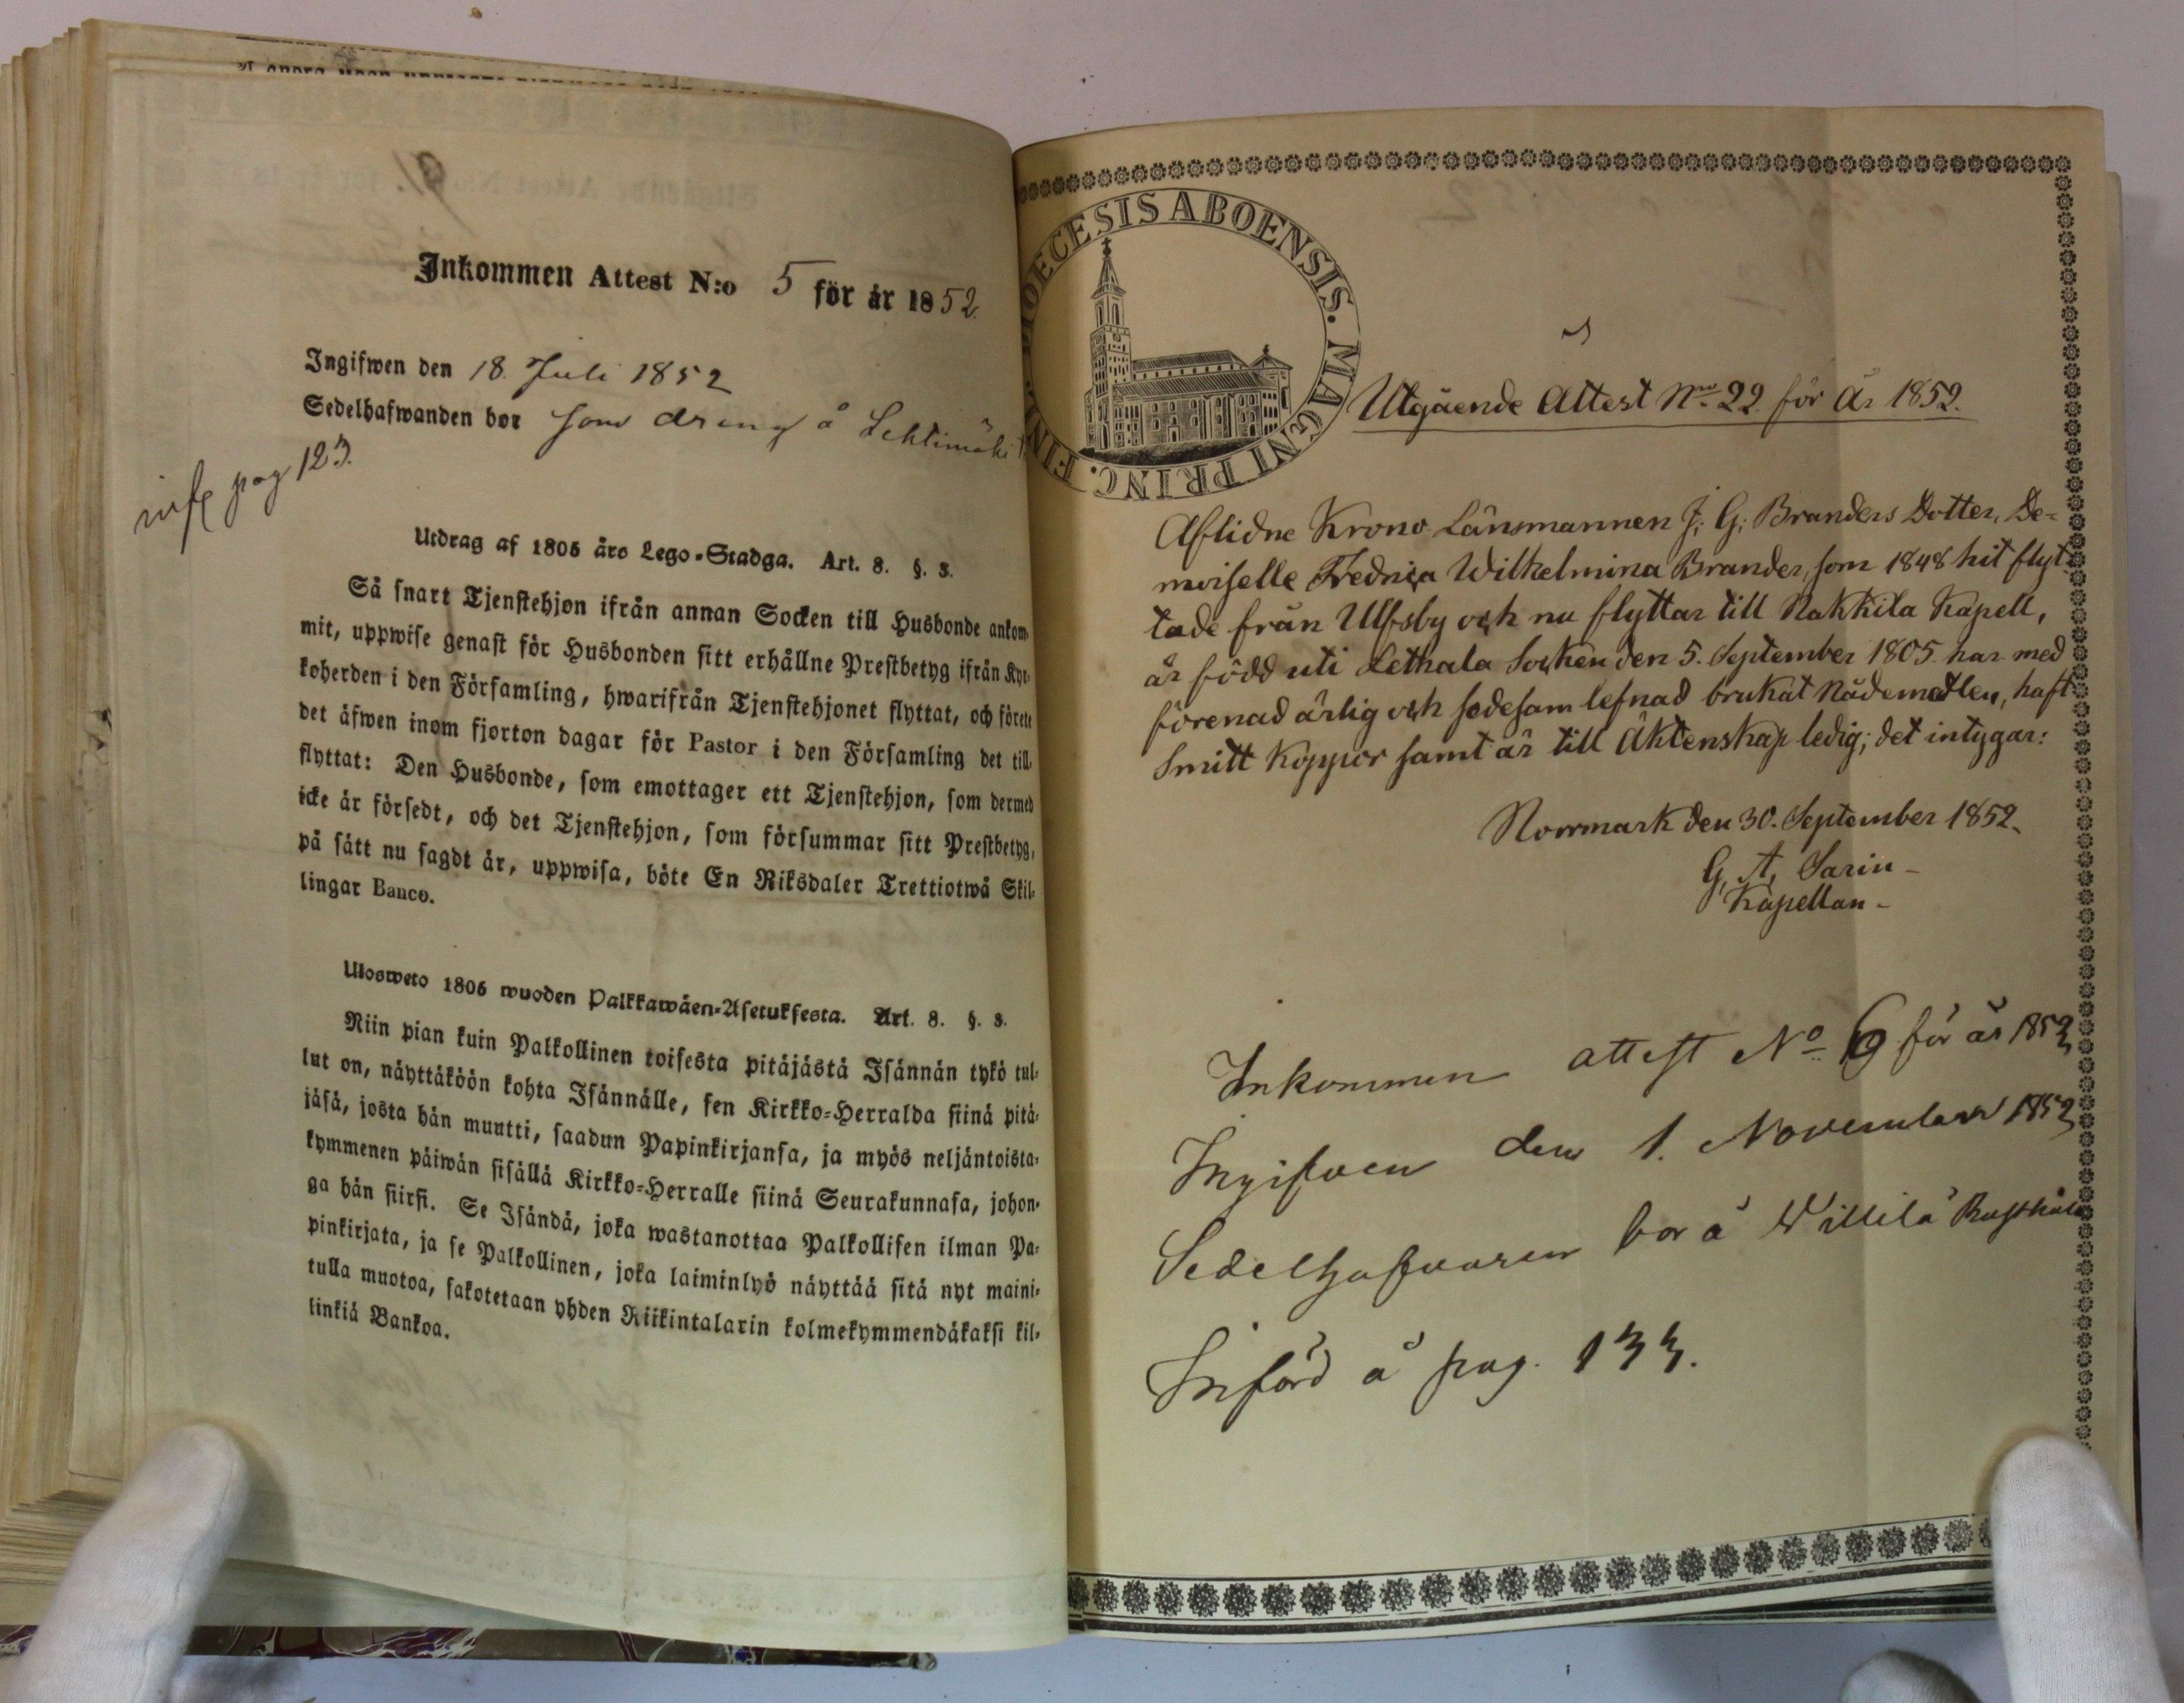 91.
Inkommen Attest N:o 5 för år 1852.
Ingifwen den 18. Juli 1852
Sedelhafwanden bor som dreng å Lehtimäki
inf pag 123.
Utdrag af 1805 års Lego-Stadga. Art. 8. §. 3.
Så snart Tjenstehjon ifrån annan Socken till Husbonde ankom-
mit, uppwise genast för Husbonden sitt erhållne Prestbetyg ifrån Kyr-
koherden i den Församling, hwarifrån Tjenstehjonet flyttat, och förete
det äfwen inom fjorton dagar för Pastor i den Församling det till-
flyttat: Den Husbonde, som emottager ett Tjenstehjon, som dermed
icke är försedt, och det Tjenstehjon, som försummar sitt Prestbetyg,
på sätt nu sagdt är, uppwisa, böte En Riksdaler Trettiotwå Skil-
lingar Banco.
Ulosweto 1805 wuoden Palkkawäen-Asetuksesta. Art. 8. §. 3.
Niin pian kuin Palkollinen toisesta pitäjästä Isännän tykö tul-
lut on, näyttäköön kohta Isännälle, sen Kirkko-Herralda siinä pitä-
jäsä, josta hän muutti, saadun Papinkirjansa, ja myös neljäntoista-
kymmenen päiwän sisällä Kirkko-Herralle siinä Seurakunnasa, johon-
ga hän siirsi. Se Isändä, joka wastanottaa Palkollisen ilman Pa-
pinkirjata, ja se Palkollinen, joka laiminlyö näyttää sitä nyt maini-
tulla muotoa, sakotetaan yhden Riikintalarin kolmekymmendäkaksi kil-
linkiä Bankoa.
DIOECESIS ABOENSIS. MAGNI PRINC. FINL.
Utgående Attest No. 22. för År 1852.
Aflidne Krono Länsmannen J; G; Branders Dotter, De-
moiselle Fredrica Wilhelmina Brander, som 1848 hit flyt-
tade från Ulfsby och nu flyttar till Nakkila Kapell,
är född uti Lethala Socken den 5. September 1805. har med
förenad ärlig och sedesam lefnad brukat Nådemedlen, haft
Smitt Koppor samt är till Äktenskap ledig; det intygar:
Norrmark den 30. September 1852.
G, A, Sarin -
Kapellan -
Inkommen attest No 6 för år 1852
Ingifven den 1. November 1852
Sedelhafvaren bor å Willilä Rusthåll
Införd å pag. 133.